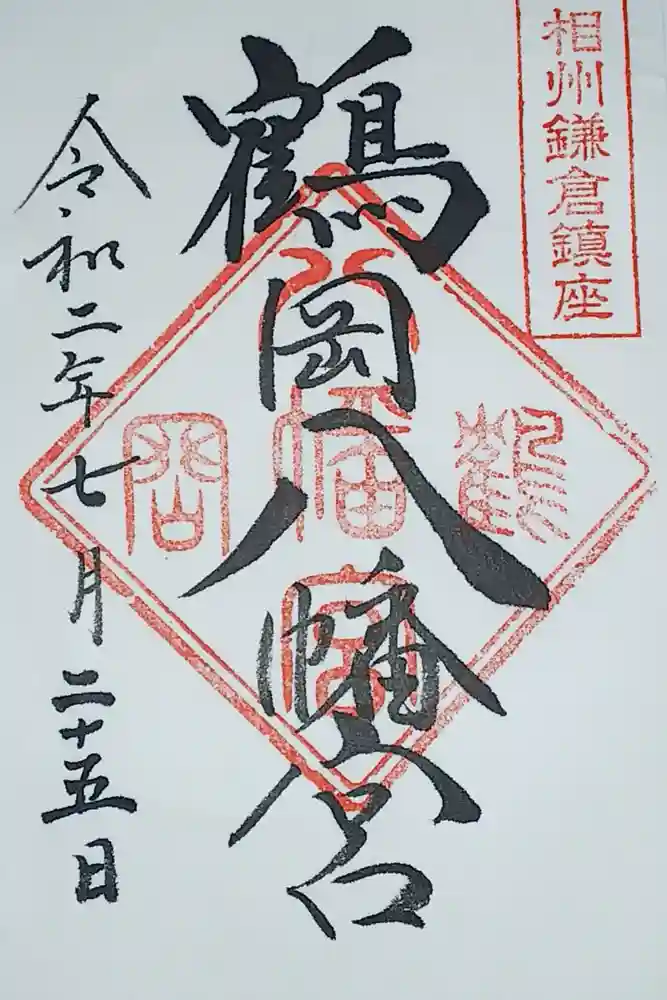 相州鎌倉鎮座
鶴岡八幡宮
令和二年七月二十五日
鶴
八
幡
宮
岡